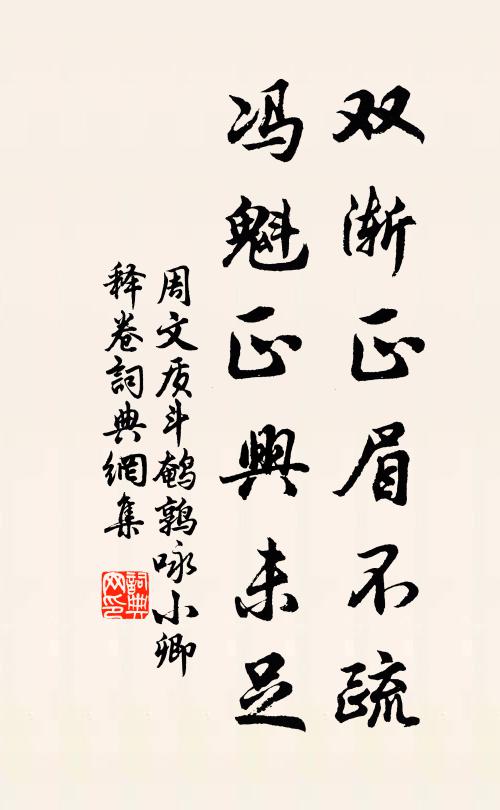 双渐正眉不疏
冯魁正興未足
周文质斗鹌鹑咏小卿
释卷詞典網集
詞典网印